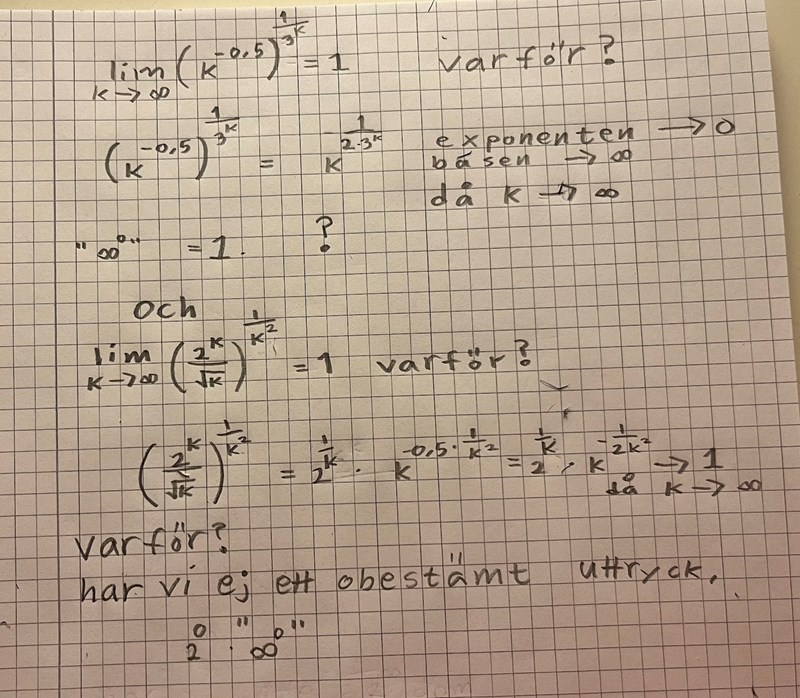 lim k→∞ (k^-0,5)^(1/3^k) = 1 varför?
(k^-0,5)^(1/3^k) = k^(1/(2·3^k)) exponenten → 0
basen → ∞
då k → ∞
"∞⁰" = 1. ?
och
lim k→∞ (2^k/√k)^(1/k²) = 1 varför?
(2^k/√k)^(1/k²) = 2^(1/k) · k^(-0,5·1/k²) = 2^(1/k) · k^(-1/(2k²)) → 1
då k → ∞
varför?
har vi ej ett obestämt uttryck.
2⁰ · "∞⁰"